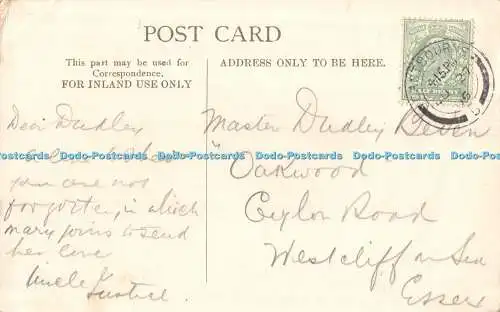 POST CARD
This part may be used for
Correspondence.
FOR INLAND USE ONLY
ADDRESS ONLY TO BE HERE.
Dear Dudley
you are not
forgotten, in which
mary joins to send
her love
Uncle
Justice
Master Dudley Beven
"Oakwood
Ceylon Road
Westcliff on Sea
Essex
EASTBOURNE
HALF PENNY
Dodo-Postcards Dodo-Postcards Dodo-Postcards Dodo-Postcards Dodo-Postcards
Dodo-Postcards Dodo-Postcards Dodo-Postcards Dodo-Postcards